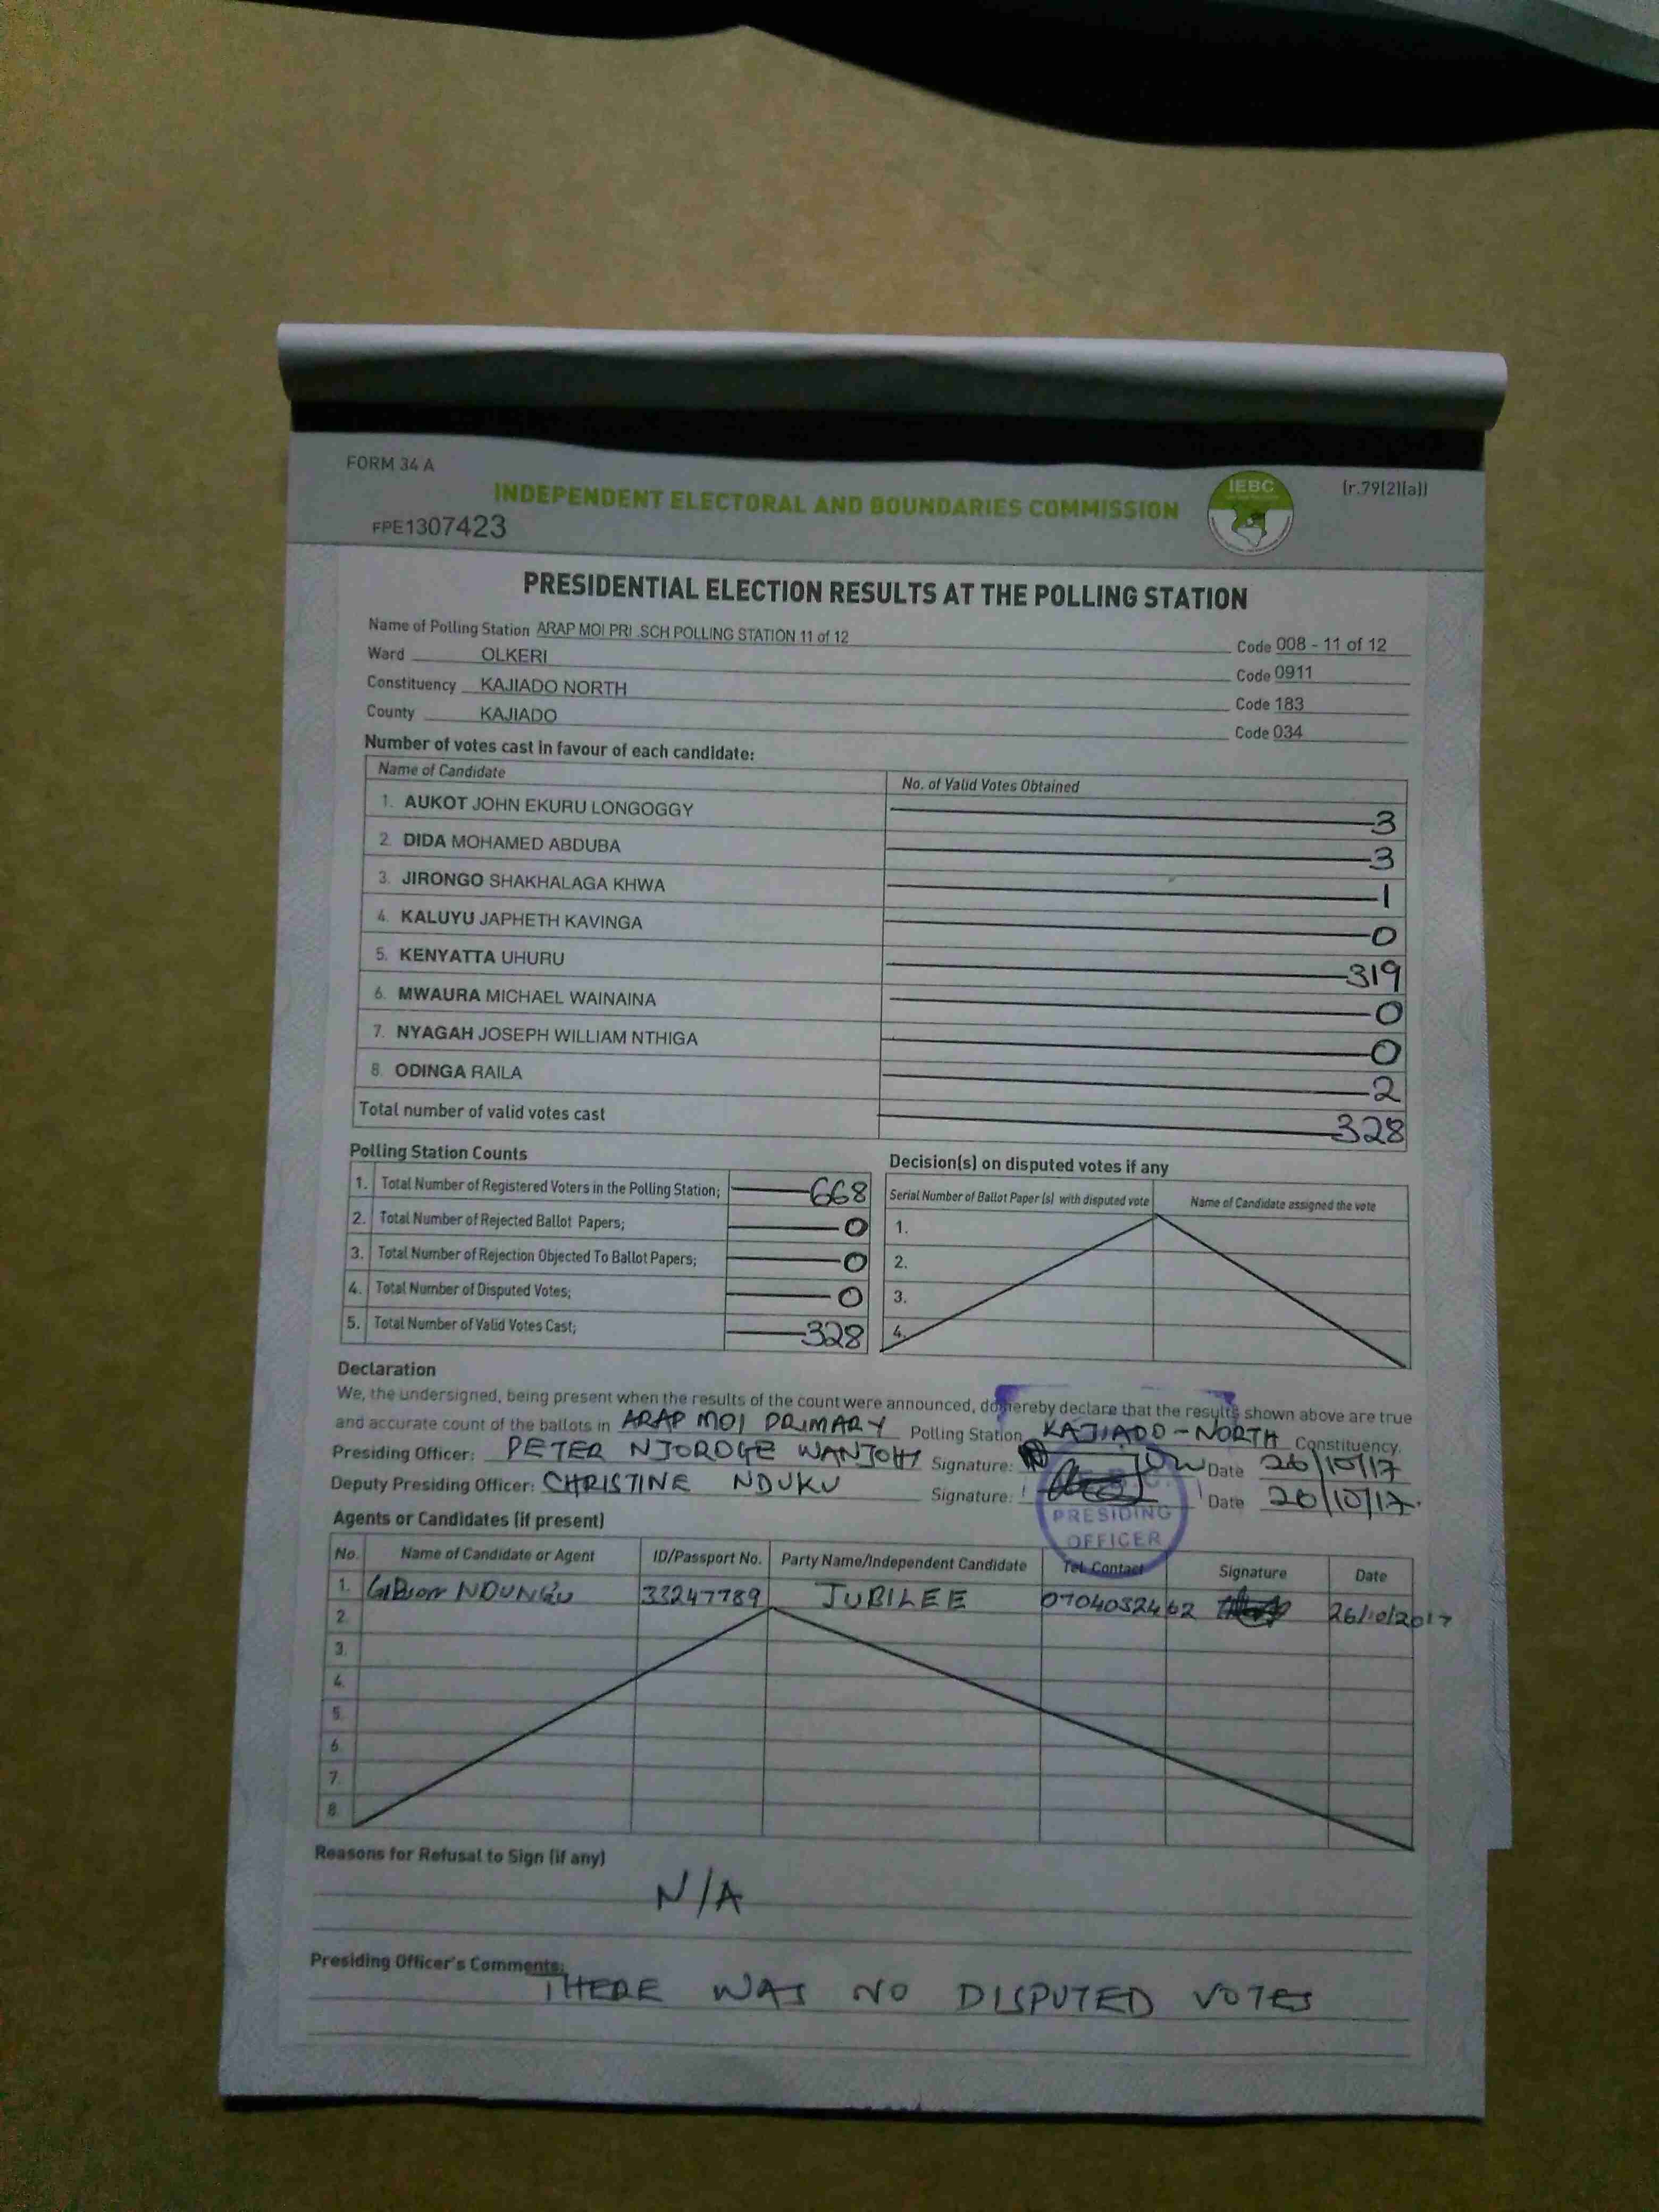 FORM 34 A
INDEPENDENT ELECTORAL AND BOUNDARIES COMMISSION
IEBC
(r.79(2)(a))
FPE1307423
PRESIDENTIAL ELECTION RESULTS AT THE POLLING STATION
Name of Polling Station ARAP MOI PRI .SCH POLLING STATION 11 of 12 Code 008 - 11 of 12
Ward OLKERI Code 0911
Constituency KAJIADO NORTH Code 183
County KAJIADO Code 034
Number of votes cast in favour of each candidate:
Name of Candidate No. of Valid Votes Obtained
1. AUKOT JOHN EKURU LONGOGGY 3
2. DIDA MOHAMED ABDUBA 3
3. JIRONGO SHAKHALAGA KHWA 1
4. KALUYU JAPHETH KAVINGA 0
5. KENYATTA UHURU 319
6. MWAURA MICHAEL WAINAINA 0
7. NYAGAH JOSEPH WILLIAM NTHIGA 0
8. ODINGA RAILA 2
Total number of valid votes cast 328
Polling Station Counts
1. Total Number of Registered Voters in the Polling Station; 668
2. Total Number of Rejected Ballot Papers; 0
3. Total Number of Rejection Objected To Ballot Papers; 0
4. Total Number of Disputed Votes; 0
5. Total Number of Valid Votes Cast; 328
Decision(s) on disputed votes if any
Serial Number of Ballot Paper (s) with disputed vote Name of Candidate assigned the vote
1.
2.
3.
4.
Declaration
We, the undersigned, being present when the results of the count were announced, do hereby declare that the results shown above are true
and accurate count of the ballots in ARAP MOI PRIMARY Polling Station KAJIADO-NORTH Constituency.
Presiding Officer: PETER NJOROGE WANJOHI Signature: Date 26/10/17
Deputy Presiding Officer: CHRISTINE NDUKU Signature: Date 26/10/17.
PRESIDING
OFFICER
Agents or Candidates (if present)
No. Name of Candidate or Agent ID/Passport No. Party Name/Independent Candidate Tel. Contact Signature Date
1. GIBSON NDUNGU 33247789 JUBILEE 0704032462 26/10/2017
2.
3.
4.
5.
6.
7.
8.
Reasons for Refusal to Sign (if any)
N/A
Presiding Officer's Comments:
THERE WAS NO DISPUTED VOTES